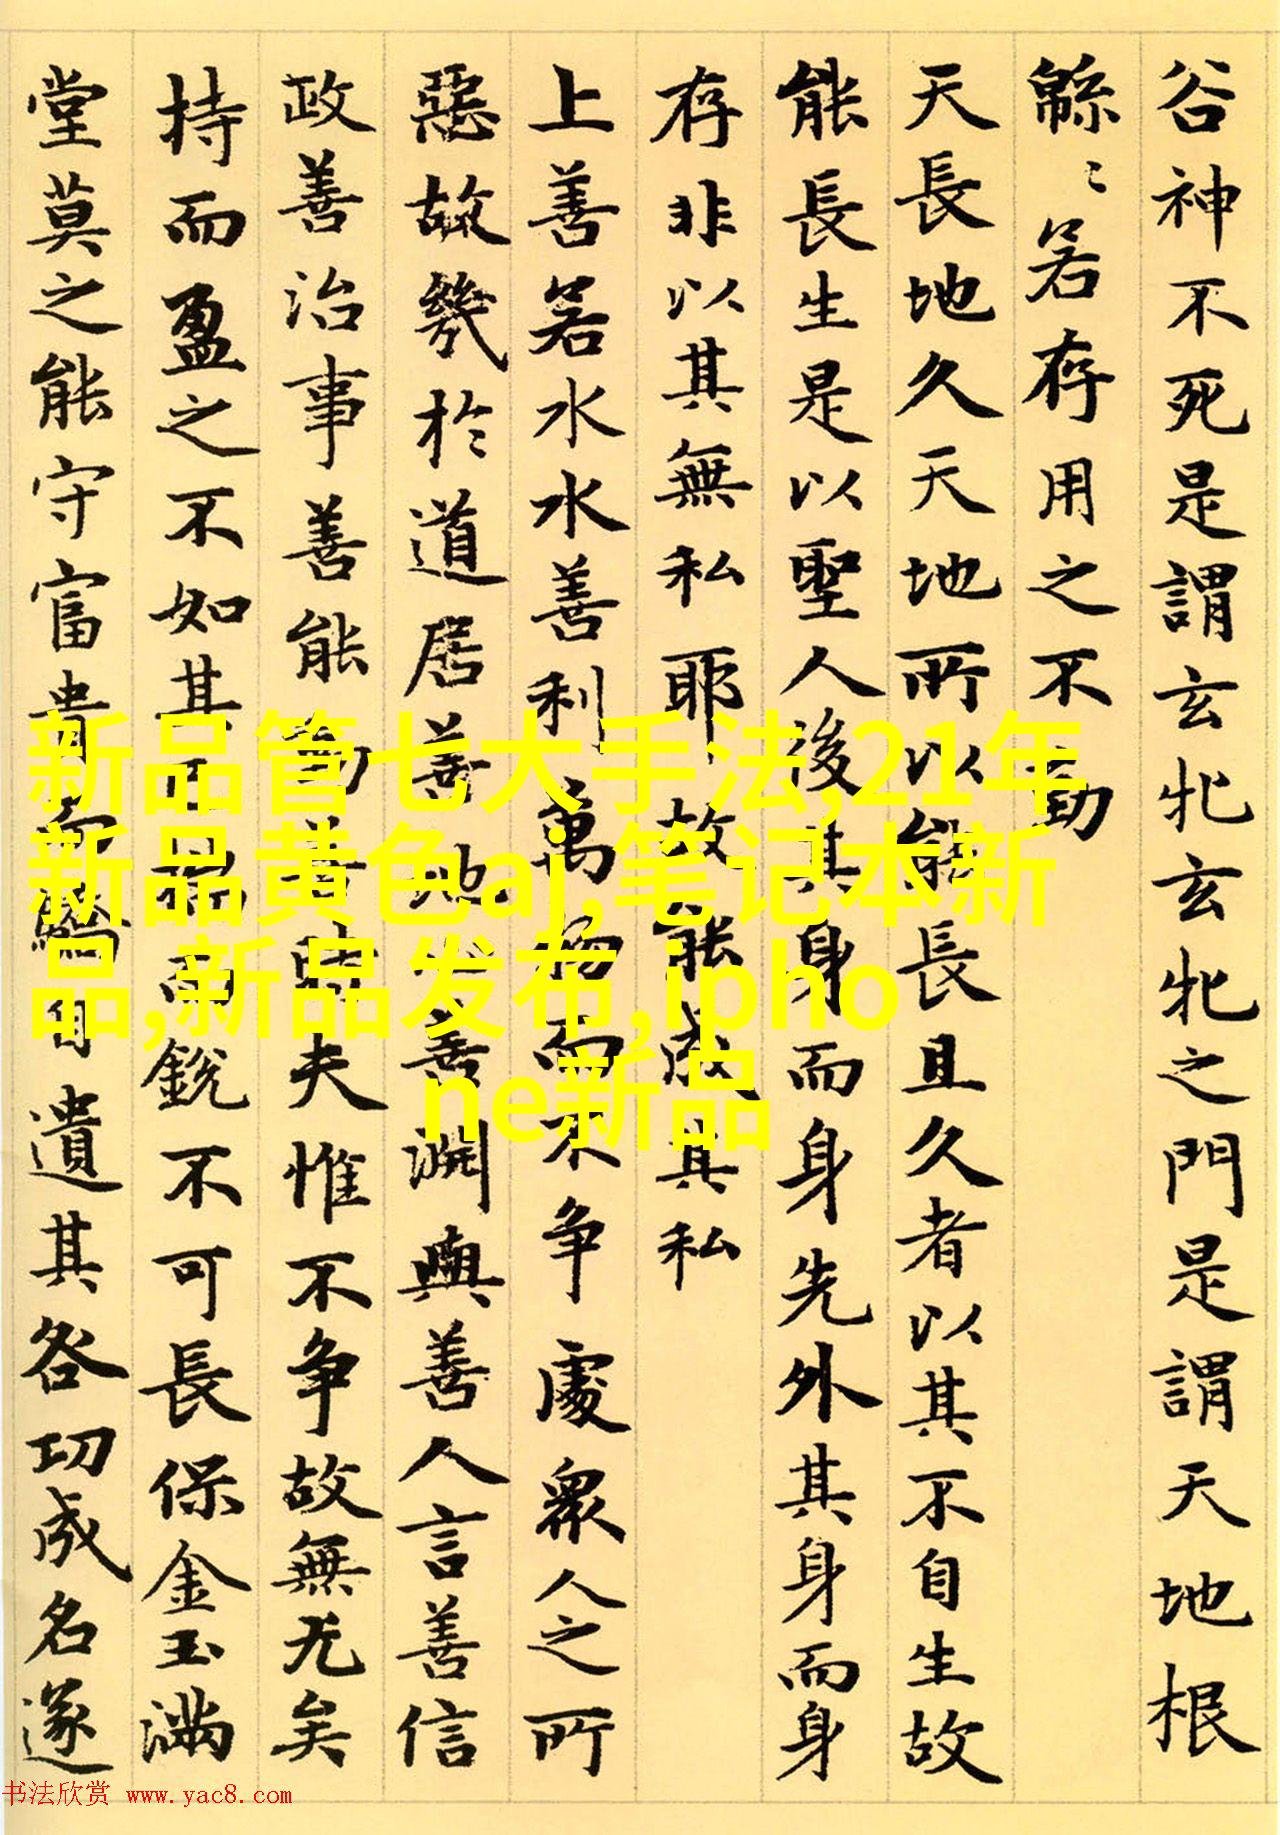 谷神不死是謂玄牝玄牝之門是謂天地根
緜〻若存用之不勤
天長地久天地所以能長且久者以其不自生故
能長生是以聖人後其身而身先外其身而身
存非以其無私耶故能成其私
上善若水水善利萬物而不争處衆人之所
惡故幾於道居善地心善淵與善人言善信
政善治事善能動善時夫惟不争故無尤矣
持而盈之不如其已揣而銳不可長保金玉滿
堂莫之能守富貴而驕自遺其咎功成名遂
新品管七大手法,21年
新品黄色aj,笔记本新
品,新品发布, ipho
ne新品
书法欣赏 www.yac8.com